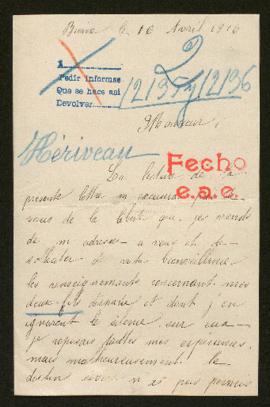 Brive le 16 Avril 1916
A
Pedir informes
Que se hace así
Devolver
2
12135 y 12136
Monsieur,
Hériveau
Fecho
e.a.e.
La lecture de la
présente lettre
de la liberté que je prends
de m'adresser a vous et de
solliciter de votre bienveillance
les renseignements concernant mes
deux fils et dont j'en
ignorent le silence sur eux
je reposais toutes mes espérances
mais malheureusement le
destin n'a pas permis